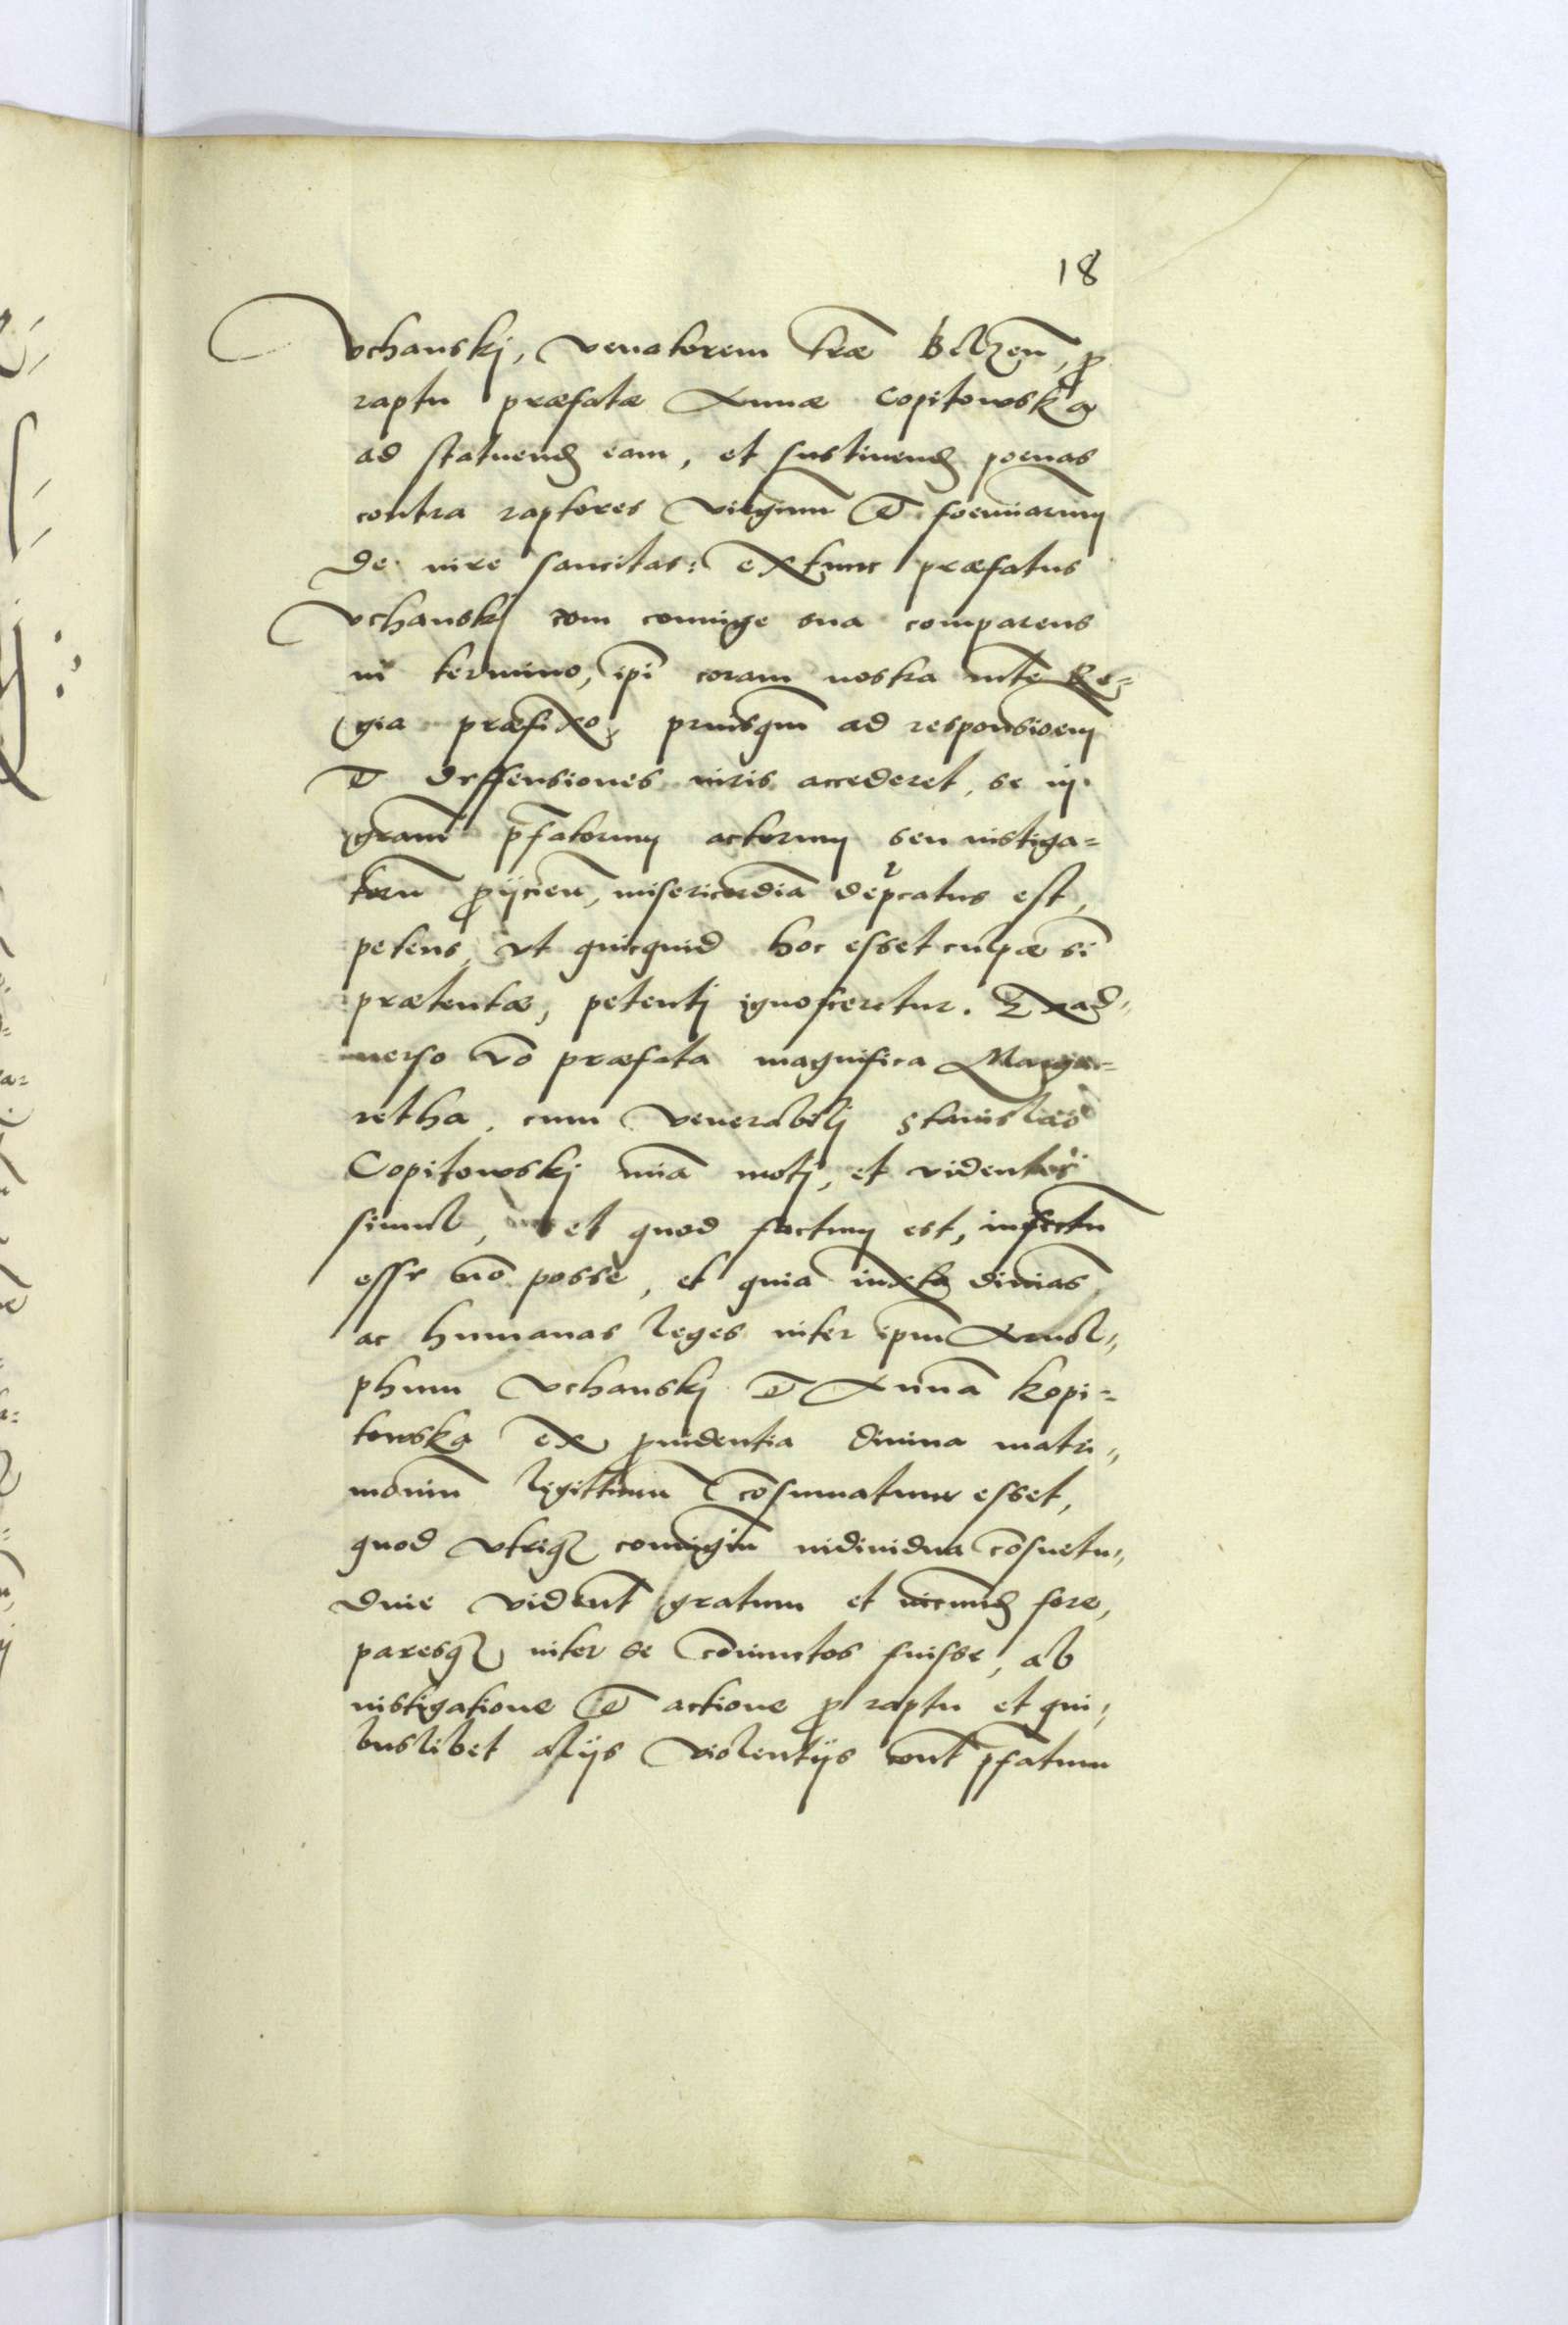 18
Vchanskj, venatorem træ Belzen̄, ꝓ
raptu præfatæ Annæ Copitowska
ad statuend eam, et sustinend poenas
contra raptores virginum et foeminarum
de iure sancitas: extunc præfatus
Vchanskj com coniuge sua comparens
in termino, ipi coram nostra mte Re=
gia præfixo, priusqm ad responsioem
et deffensiones iuris accederet, se in
gram pfatorum actorum seu instiga=
torū ꝓijcien̄, misericordiā depcatus est,
petens, vt quicquid hoc esset culpæ si
prætentæ, petentj ignosceretur. Exad=
uerso vō præfata magnifica Marga=
retha, cum venerabilj Stanislao
Copitowskj mia motj, et videntes
simul, et quod factum est, infectū
esse nō posse, et quia iuxta diuīas
ac humanas leges inter ipm Arnol=
phum Vchanskj et Annā Kopi=
towska ex ꝓuidentia diuina matri=
moniū legittimū et cōsumatum esset,
quod vtriqꝫ coniugiū indiuidua cōsuetu=
dine vident gratum et iucund fore,
paresqꝫ inter se cōiunctos fuisse, ab
instigatione et actione ꝓ raptu et qui=
buslibet alijs violentijs cont pfatum